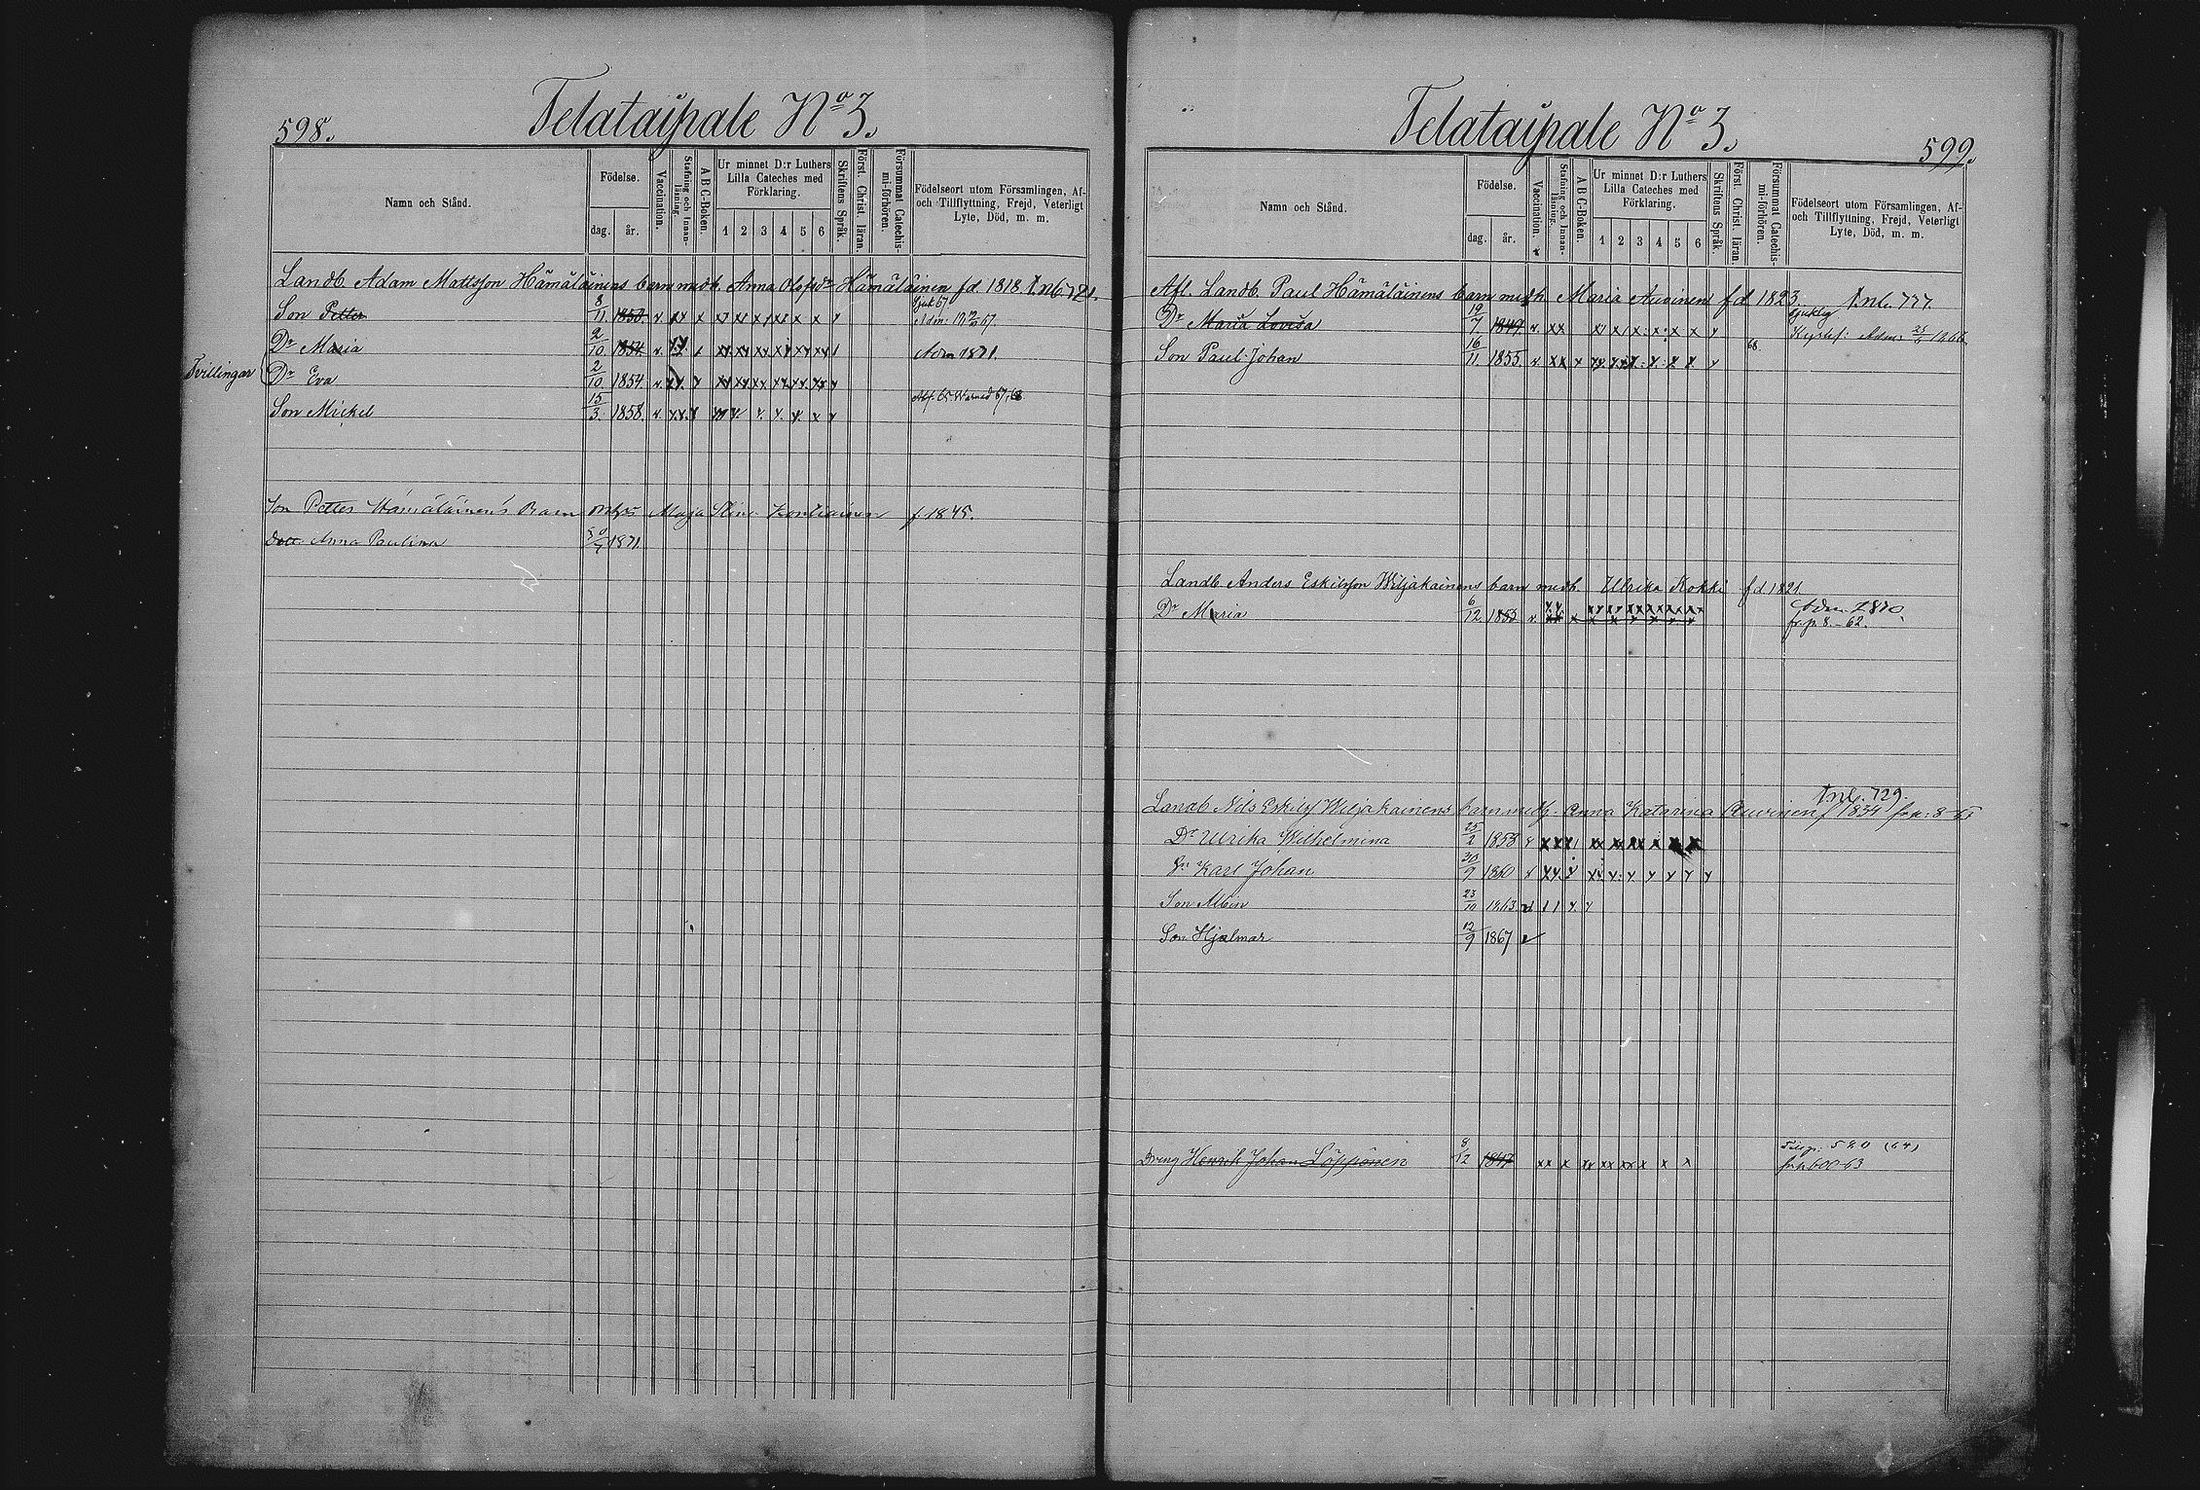 598.
Telataipale No 3.
Namn och Stånd.
Födelse.
dag.
år.
Vaccination.
Stafning och Innanläsning.
A B C-Boken.
Ur minnet D:r Luthers Lilla Cateches med Förklaring.
1 2 3 4 5 6
Skriftens Språk.
Först. Christ. läran.
Försummat Catechismi-förhören.
Födelseort utom Församlingen, Af- och Tillflyttning, Frejd, Veterligt Lyte, Död, m. m.
Landb. Adam Mattsson Hämäläinens barn medh. Anna Olofsdr Hämäläinen fd 1818
Son Petter 8/11 1850. v
Dr Maria 2/10 1854 v. Adm 1871.
Tvillingar
Dr Eva 2/10 1854 v.
Son Mickel 15/3 1858. v.
Son Petter Hämäläinen's Barn Maja Stina f 1845.
Dott. Anna Paulina 1871
Telataipale No 3.
599.
Namn och Stånd.
Födelse.
dag.
år.
Vaccination.
Stafning och Innanläsning.
A B C-Boken.
Ur minnet D:r Luthers Lilla Cateches med Förklaring.
1 2 3 4 5 6
Skriftens Språk.
Först. Christ. läran.
Försummat Catechismi-förhören.
Födelseort utom Församlingen, Af- och Tillflyttning, Frejd, Veterligt Lyte, Död, m. m.
Afl. Landb. Paul Hämäläinens barn medh. Maria Auvinen fd 1823. Inl. 777.
Dr Maria Lovisa 19/7 1849. v.
Son Paul Johan 16/11 1855. v. 68.
Landb Anders Eskilsson Wiljakainens barn medh. Ulrika Kokki fd 1821.
Dr Maria 6/12 1853 v. Adm. 1870
fr. p. 8. - 62.
Inl. 729.
Landb Nils Eskilss Wiljakainens barn medh. Anna Katarina Auvinen f 1834 fr p. 8
Dr Ulrika Wilhelmina 25/2 1858
Sn Karl Johan 30/9 1860
Son Albin 23/10 1863.
Son Hjalmar 12/9 1867 v
Dreng Henrik Johan Löppönen 8/12 1847 520 (64)
fr. p. 600-63